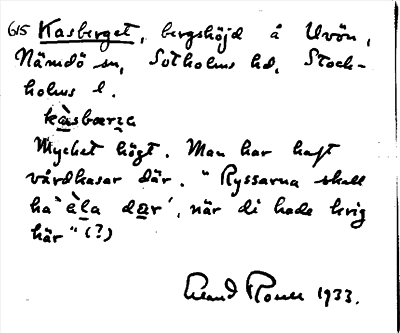 615 Kasberget, bergshöjd å Uvön,
Nämdö sn, Sotholms hd, Stock-
holms l.
kàsbærᶎe
Mycket högt. Man har haft
vårdkasar där. "Ryssarna skall
ha `èla dar´, när di hade krig
här" (?)
1933.